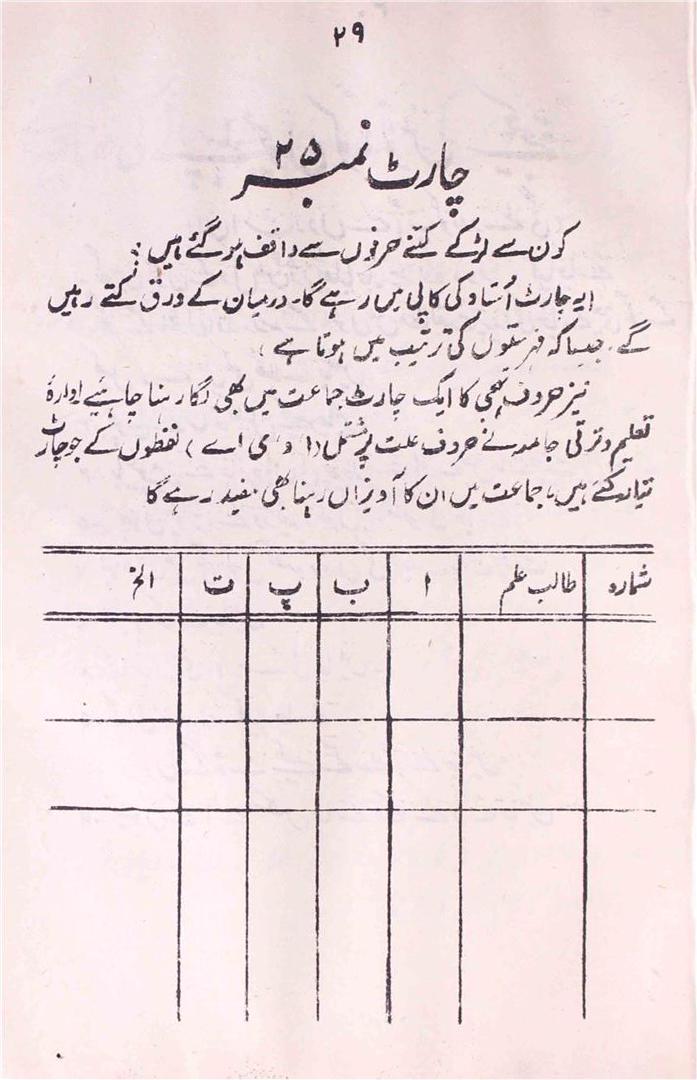 ۲۹
چارٹ نمبر ۲۵
کون سے لڑکے کتنے حرفوں سے واقف ہو گئے ہیں :
(یہ چارٹ اُستاد کی کاپی میں رہے گا۔ درمیان کے ورق کٹتے رہیں
گے۔ جیسا کہ فہرستوں کی ترتیب میں ہوتا ہے)
نیز حروف تہجی کا ایک چارٹ جماعت میں بھی لگا رہنا چاہیئے ادارۂ
تعلیم و ترقی جامعہ نے حروف علت پر مشتمل (ا و ی اے) لفظوں کے جو چارٹ
تیار کئے ہیں، جماعت میں ان کا آویزاں رہنا بھی مفید رہے گا
شمارہ طالب علم ا ب پ ت الخ